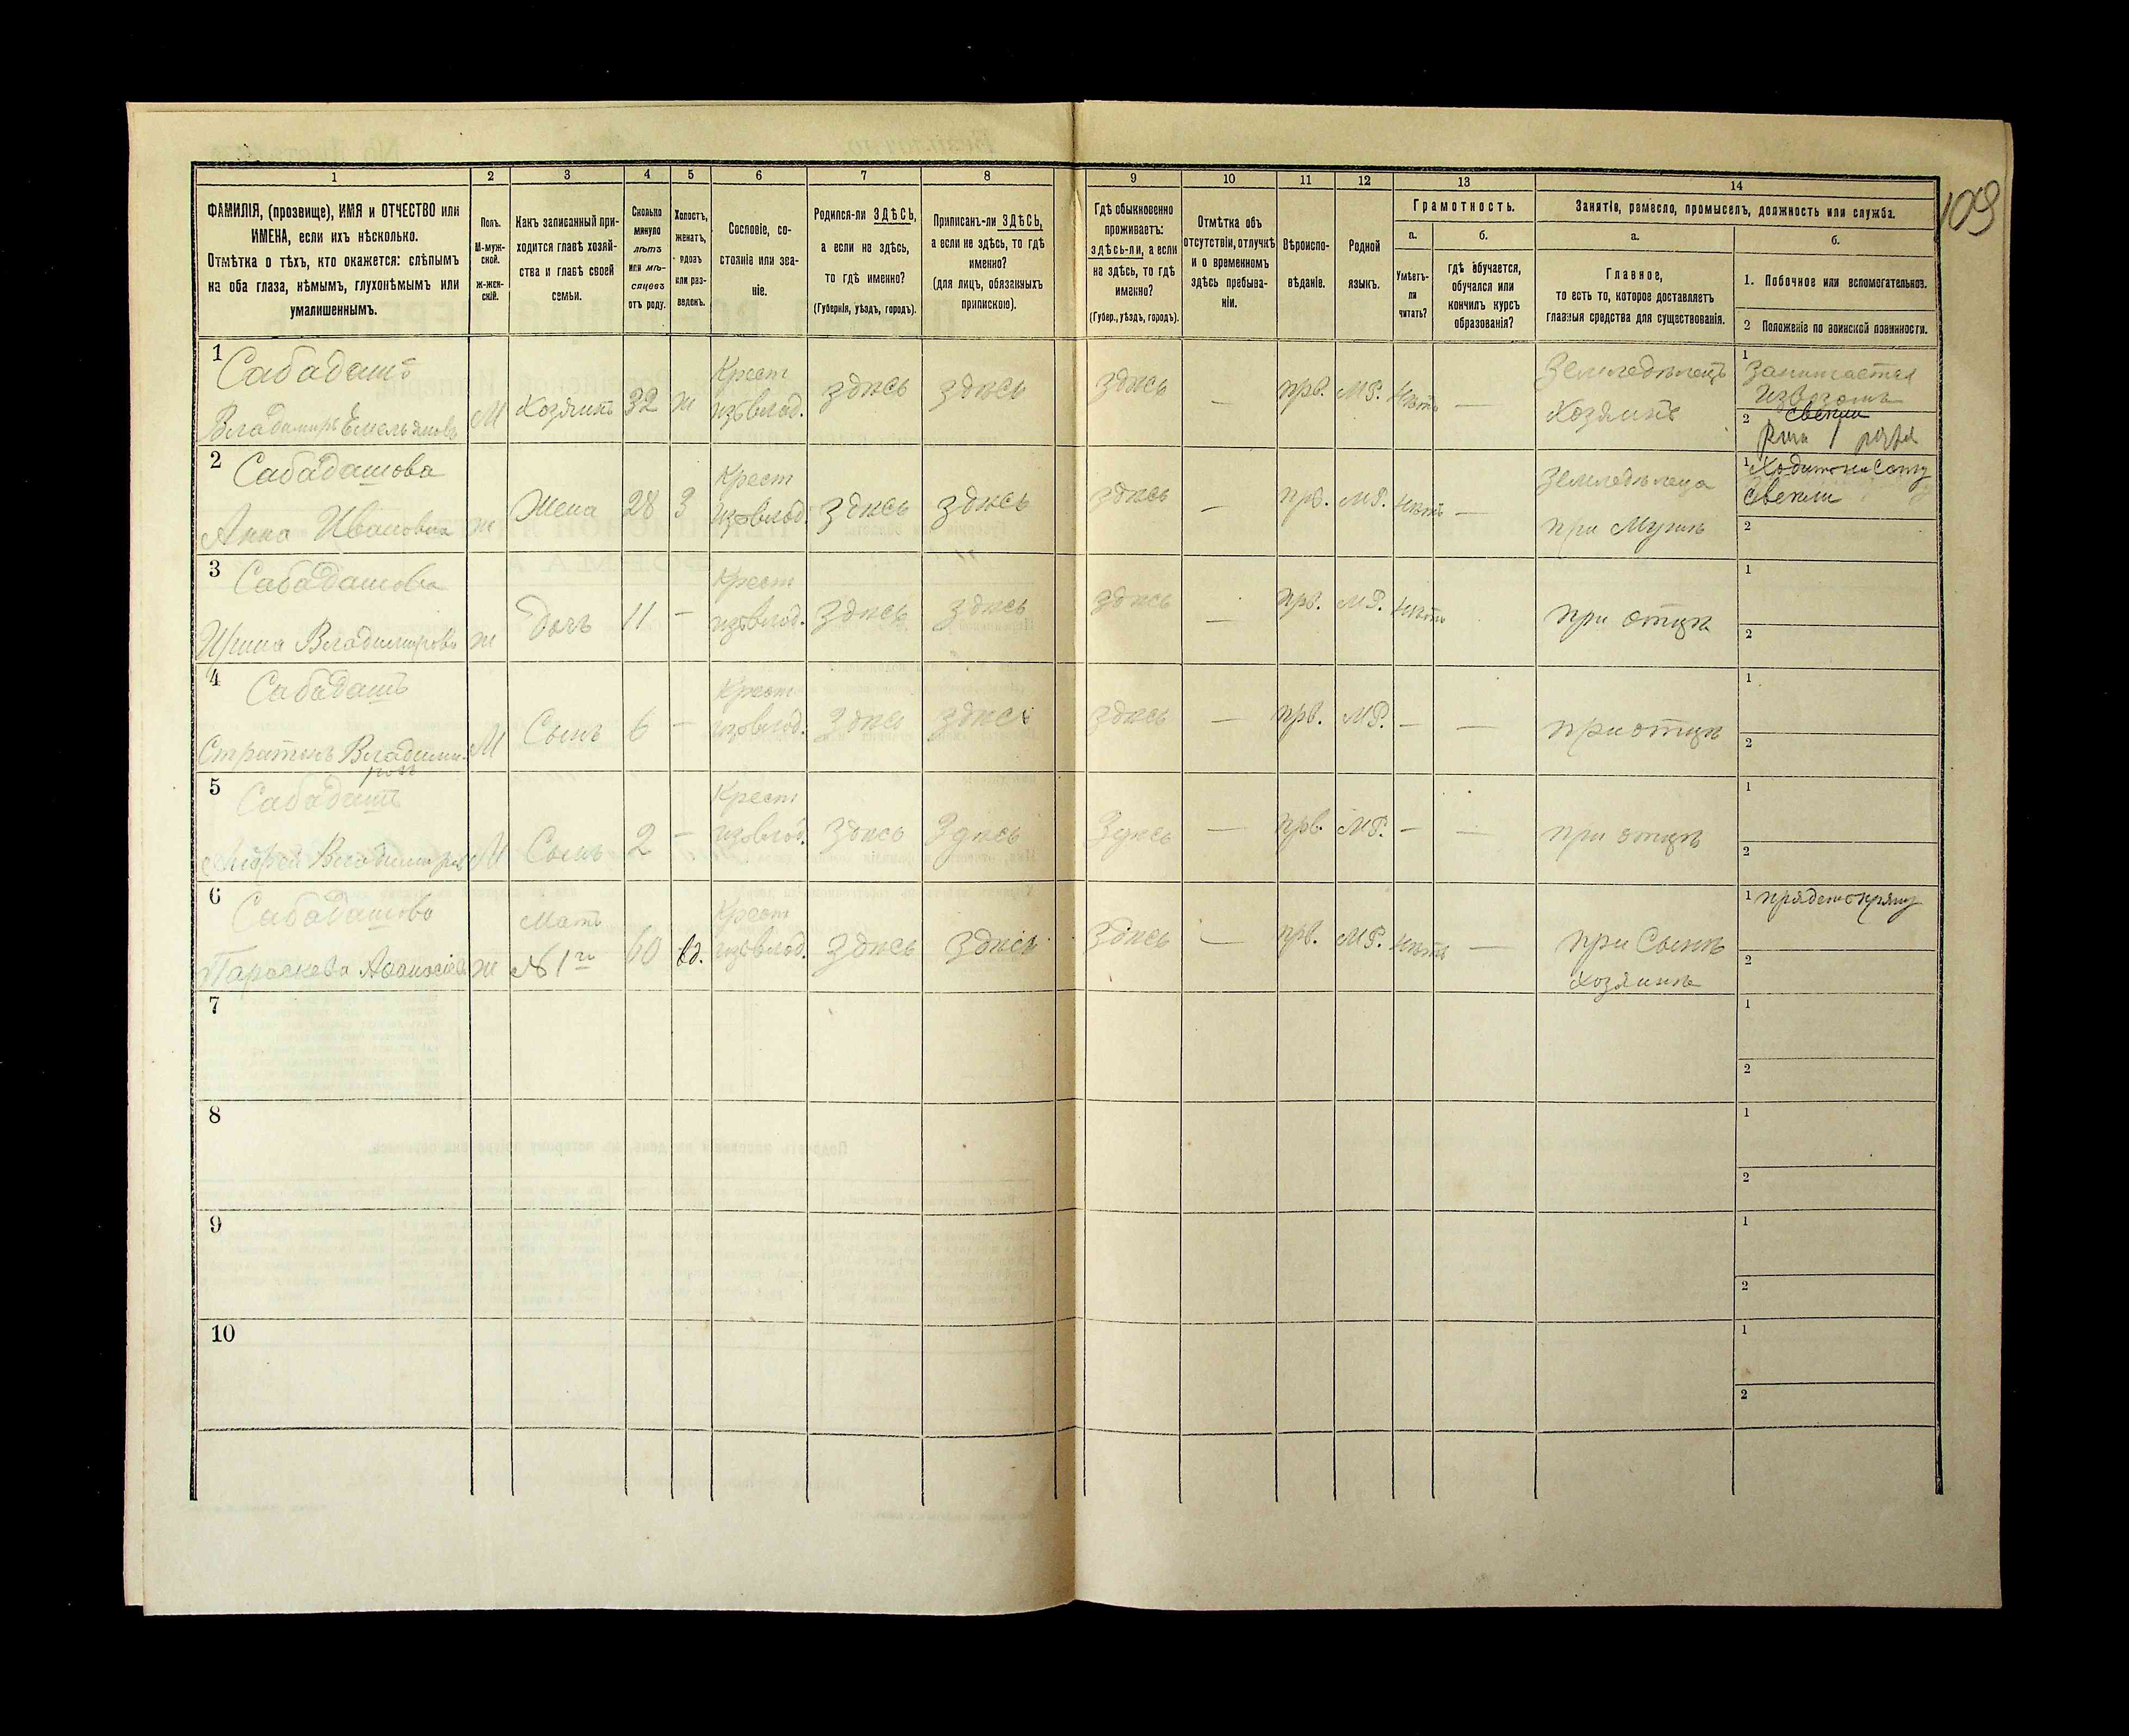 109
1 2 3 4 5 6 7 8 9 10 11 12 13 14
ФАМИЛІЯ, (прозвище), ИМЯ и ОТЧЕСТВО или
ИМЕНА, если ихъ нѣсколько.
Отмѣтка о тѣхъ, кто окажется: слѣпымъ
на оба глаза, нѣмымъ, глухонѣмымъ или
умалишеннымъ.
Полъ.
М-муж-
ской.
Ж-жен-
скій.
Какъ записанный при-
ходится главѣ хозяй-
ства и главѣ своей
семьи.
Сколько
минуло
лѣтъ
или мѣ-
сяцевъ
отъ роду.
Холостъ,
женатъ,
вдовъ
или раз-
веденъ.
Сословіе, со-
стояніе или зва-
ніе.
Родился-ли ЗДѢСЬ,
а если не здѣсь,
то гдѣ именно?
(Губернія, уѣздъ, городъ).
Приписанъ-ли ЗДѢСЬ,
а если не здѣсь, то гдѣ
именно?
(для лицъ, обязанныхъ
припискою).
Гдѣ обыкновенно
проживаетъ:
здѣсь-ли, а если
не здѣсь, то гдѣ
именно?
(Губер., уѣздъ, городъ).
Отмѣтка объ
отсутствіи, отлучкѣ
и о временномъ
здѣсь пребыва-
ніи.
Вѣроиспо-
вѣданіе.
Родной
языкъ.
Грамотность.
а.
Умѣетъ-
ли
читать?
б.
гдѣ обучается,
обучался или
кончилъ курсъ
образованія?
Занятіе, ремесло, промыселъ, должность или служба.
а.
Главное,
то есть то, которое доставляетъ
главныя средства для существованія.
б.
1. Побочное или вспомогательное.
2 Положеніе по воинской повинности.
1 Сабадашъ
Владимиръ Емельяновъ М Хозяинъ 32 ж Крест
изъ влад. здѣсь здѣсь здѣсь — прв. МР. нѣтъ —
Земледѣлецъ
Хозяинъ
1 Занимается
Извозомъ
свекли
2
2 Сабадашова
Анна Ивановна ж Жена 28 З Крест
изъ влад. здѣсь здѣсь здѣсь — прв. МР. нѣтъ —
Земледѣлеца
при Мужѣ
1 Ходитъ на
свекли
2
3 Сабадашова
Ирина Владимировъ ж Дочь 11 — Крест
изъ влад. здѣсь здѣсь здѣсь — прв. МР. нѣтъ
при отцѣ
1
2
4 Сабадашъ
Стратонъ Владими-
ровъ М Сынъ 6 — Крест
изъ влад. здѣсь здѣсь здѣсь — прв. МР. — —
при отцѣ
1
2
5 Сабадашъ
Владимировъ М Сынъ 2 — Крест
изъ влад. здѣсь здѣсь здѣсь — прв. МР. — —
при отцѣ
1
2
6 Сабадашова
Параскева Афанасіев. ж Мать
№ 1го 60 вд. Крест
изъ влад. здѣсь здѣсь здѣсь — прв. МР. нѣтъ —
при Сынѣ
хозяинѣ
1 прядетъ пряжу
2
7
1
2
8
1
2
9
1
2
10
1
2